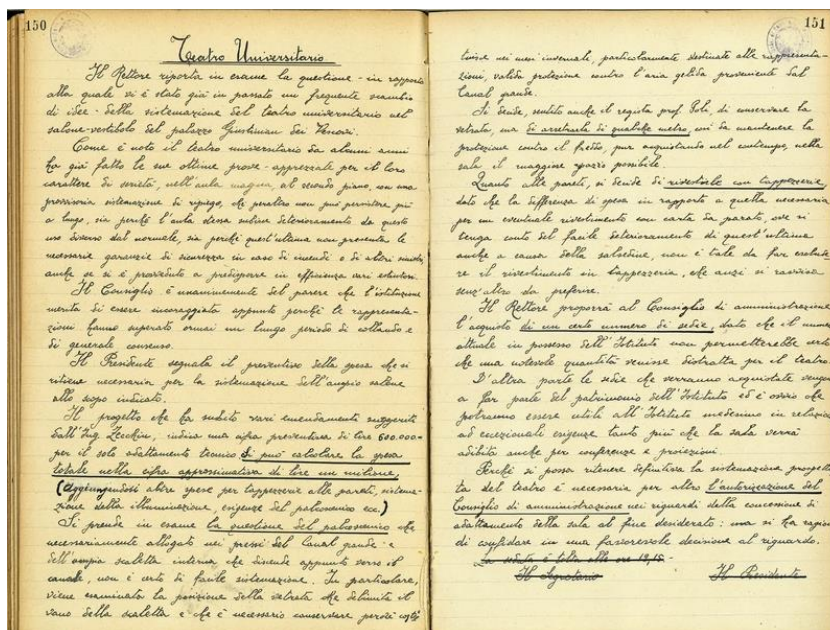 150
Teatro Universitario
Il Rettore riporta in esame la questione - in rapporto
alla quale vi è stato già in passato un frequente scambio
di idee - della sistemazione del teatro universitario nel
salone-vestibolo del palazzo Giustinian dei Vescovi.
Come è noto il teatro universitario da alcuni anni
ha già fatto le sue ottime prove - apprezzate per il loro
carattere di serietà, nell'aula magna, al secondo piano, con una
provvisoria sistemazione di ripiego, che peraltro non può persistere più
a lungo, sia perché l'aula stessa subisce deterioramento da questo
uso diverso dal normale, sia perché quest'ultima non presenta le
necessarie garanzie di sicurezza in caso di incendi o di altri sinistri,
anche se si è provveduto a predisporre in efficienza vari estintori.
Il Consiglio è unanimemente del parere che l'istituzione
merita di essere incoraggiata appunto perché le rappresenta-
zioni hanno superato ormai un lungo periodo di collaudo e
di generale consenso.
Il Presidente segnala il preventivo della spesa che si
ritiene necessaria per la sistemazione dell'ampio salone
allo scopo indicato.
Il progetto che ha subito vari emendamenti suggeriti
dall'Ing. Zecchin, indica una cifra preventiva di lire 600.000=
per il solo adattamento tecnico. Si può calcolare la spesa
totale nella cifra approssimativa di lire un milione,
(aggiungendosi altre spese per tappezzerie alle pareti, sistema-
zione della illuminazione, esigenze del palcoscenico ecc.)
Si prende in esame la questione del palcoscenico che
necessariamente allogato nei pressi del Canal grande - e
dell'ampia scaletta interna, che discende appunto verso il
canale, non è certo di facile sistemazione. In particolare,
viene esaminata la posizione della vetrata che delimita il
vano della scaletta e che è necessario conservare perché costi
151
tuisce nei mesi invernali, particolarmente destinati alle rappresenta-
zioni, valida protezione contro l'aria gelida proveniente dal
Canal grande.
Si decide, sentito anche il regista prof. Poli, di conservare la
vetrata, ma di arretrarla di qualche metro, così da mantenere la
protezione contro il freddo, pur acquistando nel contempo, nella
sala il maggiore spazio possibile.
Quanto alle pareti, si decide di rivestirle con tappezzerie,
dato che la differenza di spesa in rapporto a quella necessaria
per un eventuale rivestimento con carta da parato, ove si
tenga conto del facile deterioramento di quest'ultima
anche a causa della salsedine, non è tale da far esclude
re il rivestimento in tappezzeria, che anzi si ravvisa
senz'altro da preferire.
Il Rettore proporrà al Consiglio di amministrazione
l'acquisto di un certo numero di sedie, dato che il numero
attuale in possesso dell'Istituto non permetterebbe certo
che una notevole quantità venisse distratta per il teatro.
D'altra parte le sedie che verranno acquistate vengono
a far parte del patrimonio dell'Istituto ed è ovvio che
potranno essere utili all'Istituto medesimo in relazione
ad eccezionali esigenze tanto più che la sala verrà
adibita anche per conferenze e proiezioni.
Perché si possa ritenere definitiva la sistemazione progetta
ta del teatro è necessaria per altro l'autorizzazione del
Consiglio di amministrazione nei riguardi della concessione di
adattamento della sala al fine desiderato: ma si ha ragione
di confidare in una favorevole decisione al riguardo.
La seduta è tolta alle ore 19,15.-
Il Segretario Il Presidente